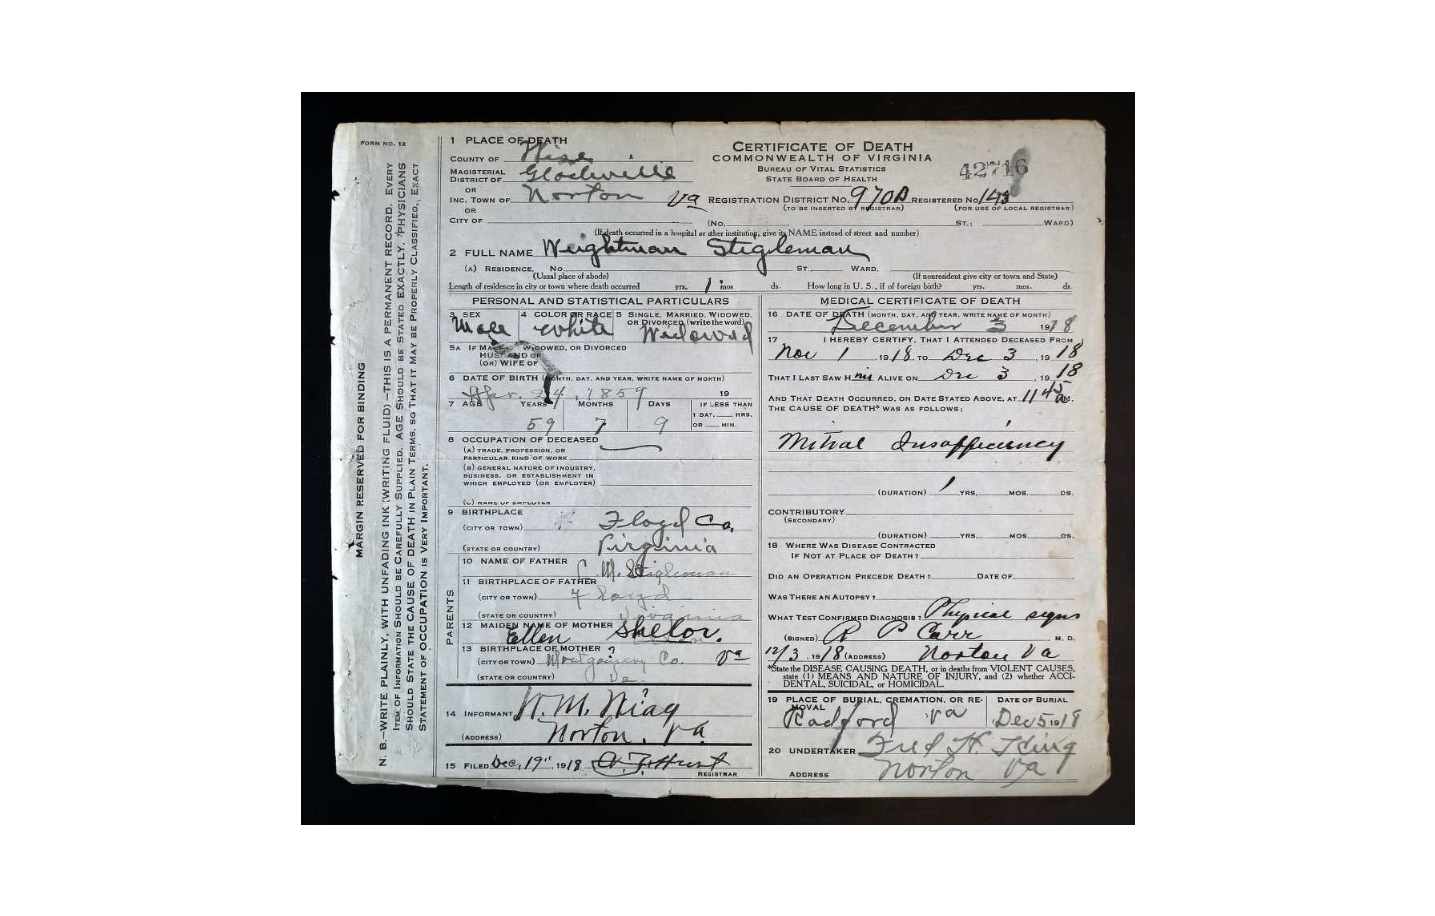 FORM NO. 12
MARGIN RESERVED FOR BINDING
N. B.—WRITE PLAINLY, WITH UNFADING INK (WRITING FLUID)—THIS IS A PERMANENT RECORD. EVERY
ITEM OF INFORMATION SHOULD BE CAREFULLY SUPPLIED. AGE SHOULD BE STATED EXACTLY. PHYSICIANS
SHOULD STATE THE CAUSE OF DEATH IN PLAIN TERMS, SO THAT IT MAY BE PROPERLY CLASSIFIED. EXACT
STATEMENT OF OCCUPATION IS VERY IMPORTANT.
1 PLACE OF DEATH
COUNTY OF Wise
MAGISTERIAL DISTRICT OF Gladeville
OR
INC. TOWN OF Norton Va
OR
CITY OF
CERTIFICATE OF DEATH
COMMONWEALTH OF VIRGINIA
BUREAU OF VITAL STATISTICS
STATE BOARD OF HEALTH
42716
REGISTRATION DISTRICT NO. 970A REGISTERED NO. 143
(TO BE INSERTED BY REGISTRAR) (FOR USE OF LOCAL REGISTRAR)
(NO. ST.; WARD)
(If death occurred in a hospital or other institution, give its NAME instead of street and number)
2 FULL NAME Weightman Stigleman
(A) RESIDENCE, No. ST., WARD.
(Usual place of abode) (If nonresident give city or town and State)
Length of residence in city or town where death occurred yrs. 1 mos ds. How long in U. S., if of foreign birth? yrs. mos. ds.
PERSONAL AND STATISTICAL PARTICULARS
3 SEX 4 COLOR OR RACE 5 SINGLE, MARRIED, WIDOWED, OR DIVORCED (write the word)
Male White Widowed
5A IF MARRIED, WIDOWED, OR DIVORCED
HUSBAND OF
(OR) WIFE OF
6 DATE OF BIRTH (MONTH, DAY, AND YEAR, WRITE NAME OF MONTH)
Apr. 24, 1859 19
7 AGE YEARS MONTHS DAYS IF LESS THAN
1 DAY, HRS.
OR MIN.
59 7 9
8 OCCUPATION OF DECEASED
(A) TRADE, PROFESSION, OR
PARTICULAR KIND OF WORK
(B) GENERAL NATURE OF INDUSTRY,
BUSINESS, OR ESTABLISHMENT IN
WHICH EMPLOYED (OR EMPLOYER)
(C) NAME OF EMPLOYER
9 BIRTHPLACE
(CITY OR TOWN) Floyd Co,
(STATE OR COUNTRY) Virginia
PARENTS
10 NAME OF FATHER C M. Stigleman
11 BIRTHPLACE OF FATHER
(CITY OR TOWN) Floyd
(STATE OR COUNTRY) Virginia
12 MAIDEN NAME OF MOTHER
Ellen Shelor.
13 BIRTHPLACE OF MOTHER ?
(CITY OR TOWN) Montgomery Co. Va
(STATE OR COUNTRY) Va.
14 INFORMANT W. M.
(ADDRESS) Norton, Va.
15 FILED Dec, 19", 1918 Hunt
REGISTRAR
MEDICAL CERTIFICATE OF DEATH
16 DATE OF DEATH (MONTH, DAY, AND YEAR, WRITE NAME OF MONTH)
December 3 1918
17 I HEREBY CERTIFY, THAT I ATTENDED DECEASED FROM
Nov 1, 1918, TO Dec 3, 1918
THAT I LAST SAW H im ALIVE ON Dec 3, 1918
AND THAT DEATH OCCURRED, ON DATE STATED ABOVE, AT 11 45 a M.
THE CAUSE OF DEATH* WAS AS FOLLOWS:
Mitral Insufficiency
(DURATION) 1 YRS. MOS. DS.
CONTRIBUTORY
(SECONDARY)
(DURATION) YRS. MOS. DS.
18 WHERE WAS DISEASE CONTRACTED
IF NOT AT PLACE OF DEATH?
DID AN OPERATION PRECEDE DEATH? DATE OF
WAS THERE AN AUTOPSY?
WHAT TEST CONFIRMED DIAGNOSIS? Physical signs
(SIGNED) R P Carr M. D.
12/3, 1918 (ADDRESS) Norton Va
*State the DISEASE CAUSING DEATH, or in deaths from VIOLENT CAUSES,
state (1) MEANS AND NATURE OF INJURY, and (2) whether ACCI-
DENTAL, SUICIDAL, or HOMICIDAL.
19 PLACE OF BURIAL, CREMATION, OR RE-
MOVAL
DATE OF BURIAL
Radford Va Dec 5 1918
20 UNDERTAKER Fred H. King
ADDRESS Norton Va